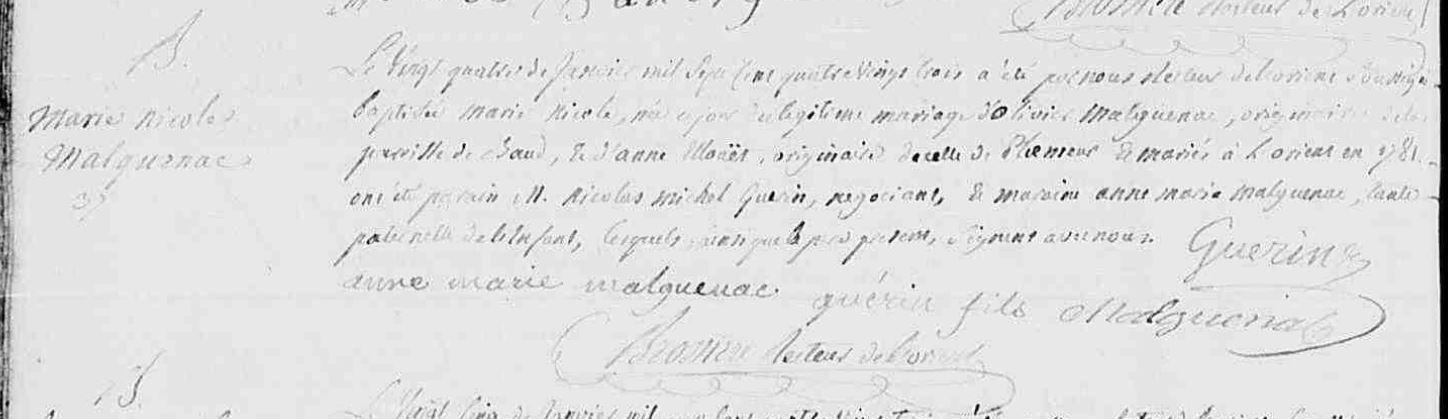 Recteur de Lorient
B.
Marie Nicole
Malguenac
Le Vingt quatre de Janvier mil Sept Cent quatre Vingt trois a été par nous Recteur de Lorient Soussigné
baptisée Marie Nicole, née ce jour du legitime mariage d'Olivier Malguenac, originaire de la
paroisse de Baud, & d'anne, originaire de celle de Plœmeur & mariés à Lorient en 1781.
ont été parain M. Nicolas Michel Guerin, negociant, & maraine anne marie Malguenac, tante
paternelle de l'Enfant, lesquels, ainsi que le pere present, Signent avec nous.
Guerin
anne marie malguenac
guérin fils
Malguenac
Recteur de Lorient
B.
Le Vingt Cinq de Janvier mil